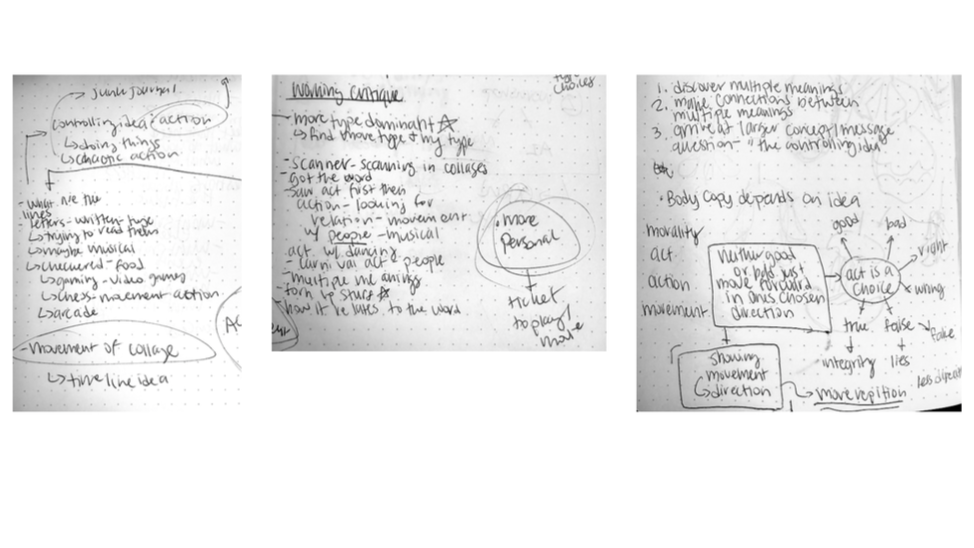 junk journal
controlling idea: action
↳ doing things
↳ chaotic action
- what are the
lines
- letters - written - type
↳ trying to read them
↳ maybe musical
↳ checkered - food
↳ gaming - video games
↳ chess - movement action
↳ arcade
- movement of collage
↳ timeline idea
Working Critique
choices
- more type dominant ☆
↳ find more type + my type
- scanner - scanning in collages
- got the word
- saw act first then
action - looking for
relation - movement
w/ people - musical
act w/ dancing
- carnival act - people
- multiple meanings
- torn up stuff ☆
how it relates to the word
• more
personal
ticket
to play/
1. discover multiple meanings
2. make connections between
multiple meanings
3. arrive at larger concept/message
question - "the controlling idea"
• Body copy depends on idea
morality
act
action
movement
Neither good
or bad just
move forward
in ones chosen
direction
act is a
choice
good
bad
right
wrong
true
false
fake
integrity
lies
showing
movement
↳ direction
↳ more repition